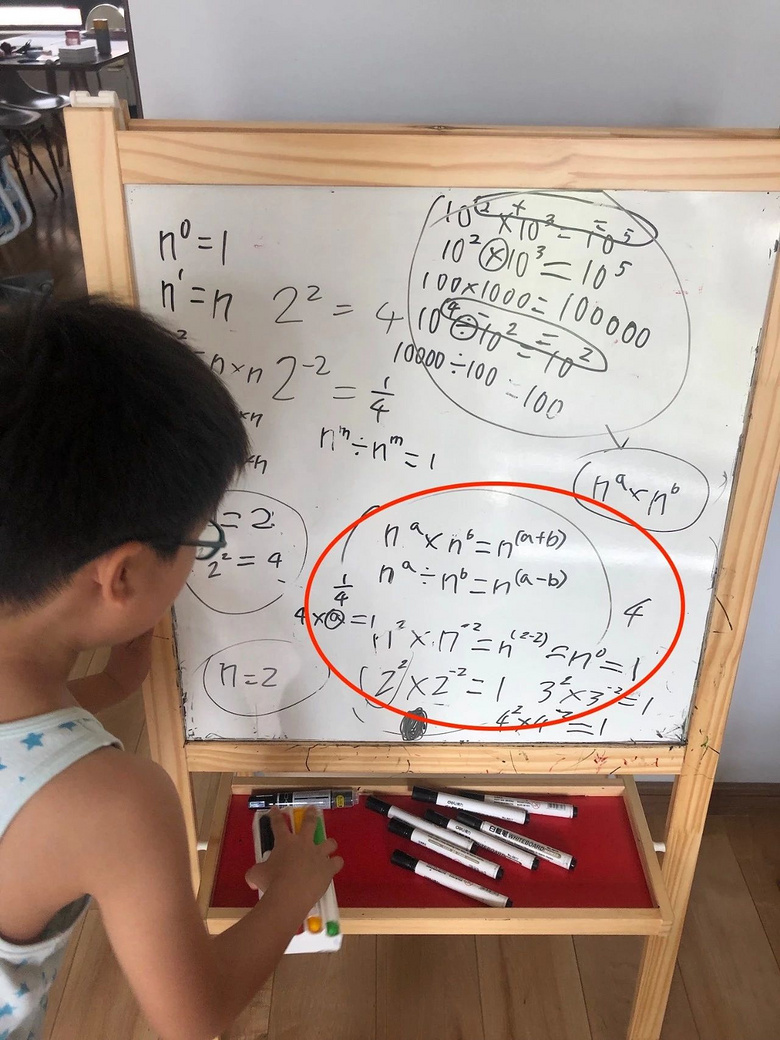 n⁰=1
n¹=n
2² = 4
n×n
2⁻² = 1/4
×n
×n
nᵐ÷nᵐ=1
10² × 10³ = 10⁵
+
10² × 10³ = 10⁵
100×1000=100000
10⁴ ÷ 10² = 10²
10000÷100=100
nᵃ×nᵇ
=2
2²=4
n=2
nᵃ×nᵇ=n⁽ᵃ⁺ᵇ⁾
nᵃ÷nᵇ=n⁽ᵃ⁻ᵇ⁾
1/4
4×a=1
4
n²×n⁻²=n⁽²⁻²⁾=n⁰=1
2²×2⁻²=1
3²×3⁻²=1
4²×4⁻²=1
deli
白板笔 WHITEBOARD